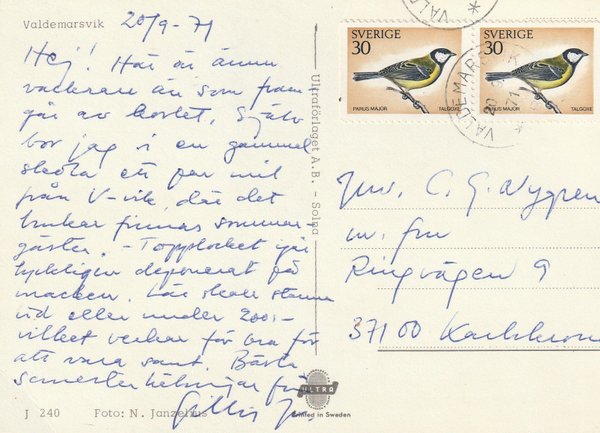 Valdemarsvik 20/9-71
Hej! Här är ännu
vackrare än som fram
går av kortet. Själv
bor jag i en gammal
skola ett par mil
från V-vik, där det
brukar finnas sommar-
gäster. - Topplocket igår
lyckligen deponerat på
macken. Lär skola stanna
vid eller under 200:-
vilket verkar för bra för
att vara sant. Bästa
semesterhälsningar från
J 240 Foto: N. Janzelius
Ultraförlaget A.B. - Solna
ULTRA
Printed in Sweden
SVERIGE
30
PARUS MAJOR TALGOXE
SVERIGE
30
PARUS MAJOR TALGOXE
VALDEMARSVIK
20 9
71
C. G. Nygren
m. fru
Ringvägen 9
37100 Karlskrona